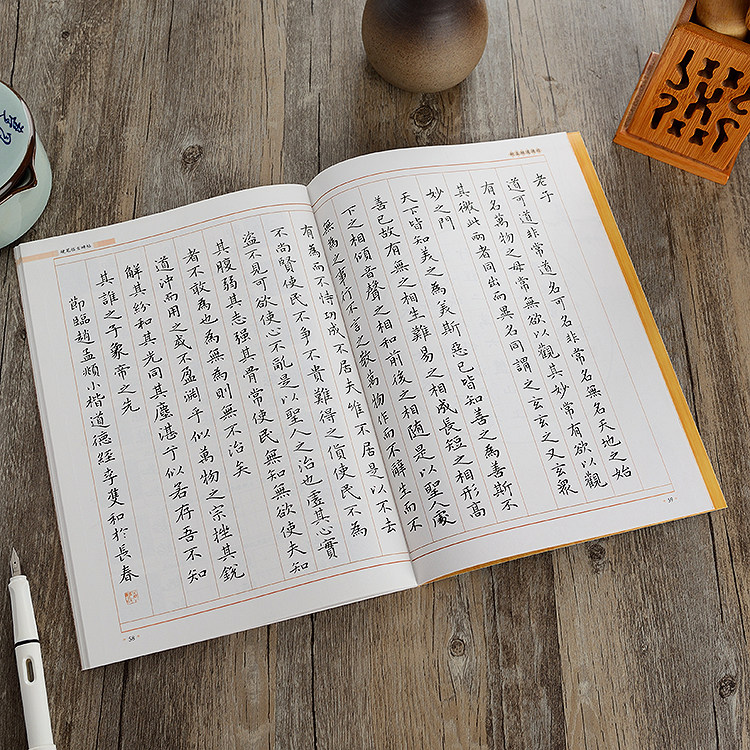 老子
道可道非常道名可名非常名無名天地之始
有名萬物之母常無欲以觀其妙常有欲以觀
其徼此兩者同出而異名同謂之玄玄之又玄衆
妙之門
天下皆知美之為美斯惡已皆知善之為善斯不
善已故有無之相生難易之相成長短之相形高
下之相傾音聲之相和前後之相隨是以聖人處
無為之事行不言之教萬物作而不辭生而不
59
硬笔临古碑帖
有為而不恃功成不居夫惟不居是以不去
不尚賢使民不爭不貴難得之貨使民不為
盜不見可欲使心不亂是以聖人之治也虛其心實
其腹弱其志强其骨常使民無知無欲使夫知
者不敢為也為無為則無不治矣
道沖而用之或不盈淵乎似萬物之宗挫其銳
解其紛和其光同其塵湛兮似若存吾不知
其誰之子象帝之先
節臨趙孟頫小楷道德經李雙和於長春
58